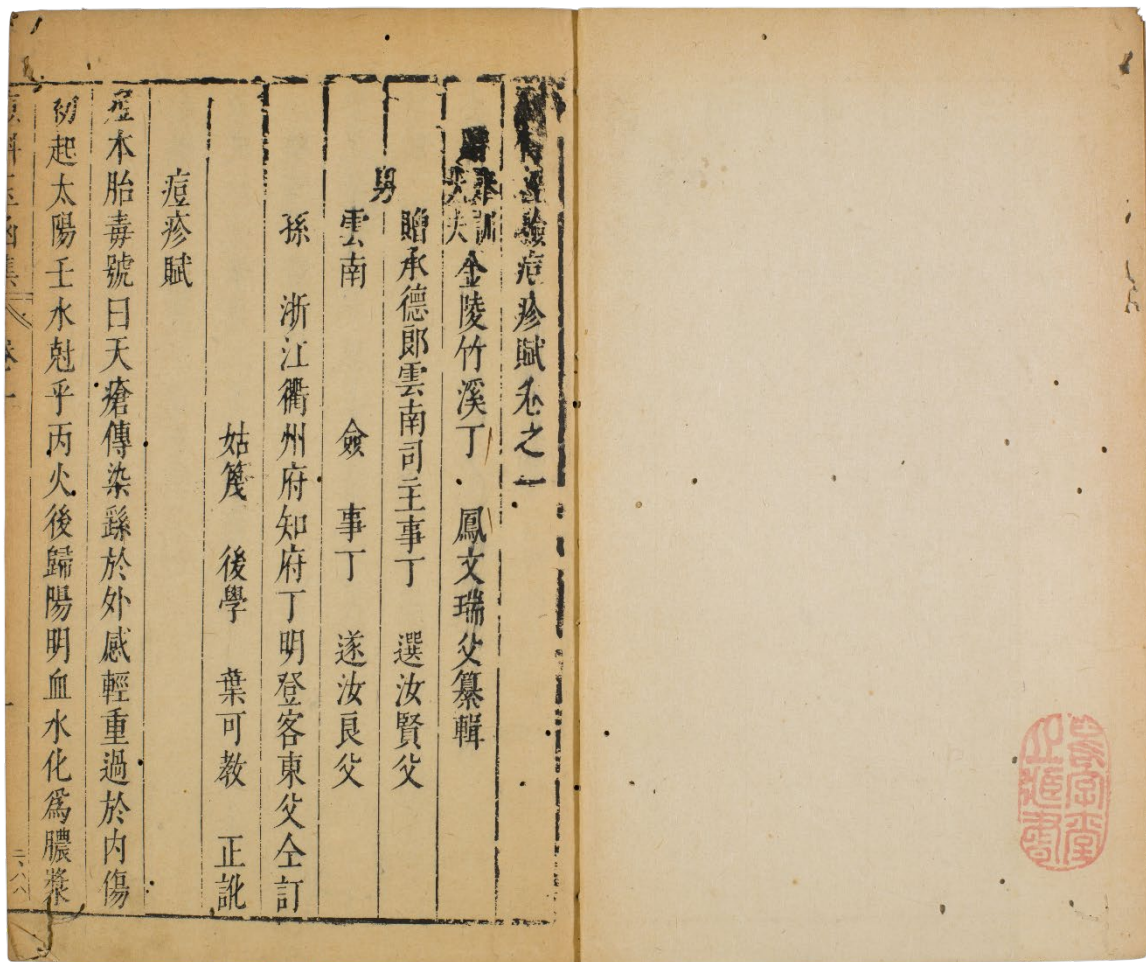 經驗痘疹賦卷之一
奉訓大夫金陵竹溪丁 鳳文瑞父纂輯
男 贈承德郎雲南司主事丁 選汝賢父
雲南 僉 事丁 遂汝良父
孫 浙江衢州府知府丁明登客東父仝訂
姑篾 後學 葉可教 正訛
痘疹賦
痘本胎毒號曰天瘡傳染繇於外感輕重過於内傷
初起太陽壬水尅乎丙火後歸陽明血水化爲膿漿
痘科玉函集 卷一 一